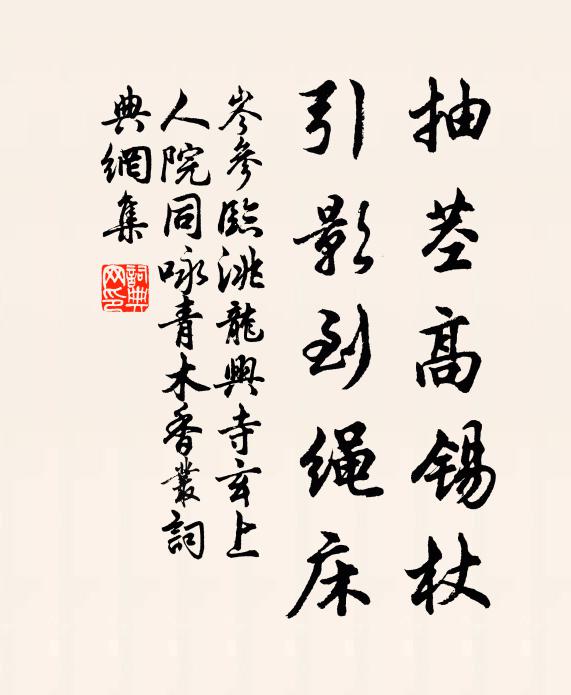 抽茎高锡杖
引影到绳床
岑參臨洮龍興寺玄上
人院同咏青木香叢詞
典網集
詞典网印